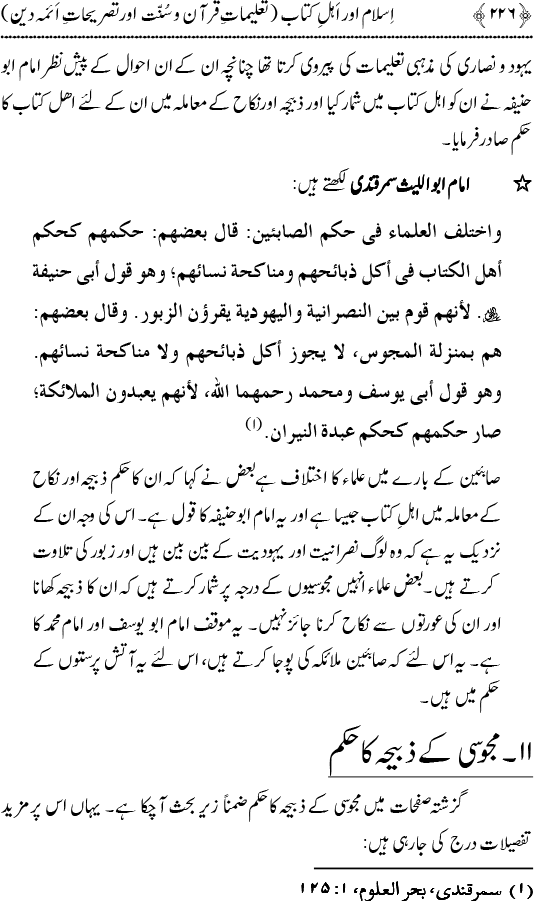 ﴿۲۲۶﴾ اِسلام اور اَہلِ کتاب (تعلیماتِ قرآن و سُنّت اور تصریحاتِ اَئمہ دین)
یہود و نصاری کی مذہبی تعلیمات کی پیروی کرتا تھا چنانچہ ان کے ان احوال کے پیش نظر امام ابو
حنیفہ نے ان کو اہل کتاب میں شمار کیا اور ذبیحہ اور نکاح کے معاملہ میں ان کے لئے اھل کتاب کا
حکم صادر فرمایا۔
☆ امام ابو اللیث سمرقندی لکھتے ہیں:
واختلف العلماء فی حکم الصابئین: قال بعضهم: حکمهم کحکم
أهل الکتاب فی أکل ذبائحهم ومناکحة نسائهم؛ وهو قول أبی حنیفة
. لأنهم قوم بین النصرانیة والیهودیة یقرؤن الزبور. وقال بعضهم:
هم بمنزلة المجوس، لا یجوز أکل ذبائحهم ولا مناکحة نسائهم.
وهو قول أبی یوسف ومحمد رحمهما الله، لأنهم یعبدون الملائکة؛
صار حکمهم کحکم عبدة النیران.(۱)
صابئین کے بارے میں علماء کا اختلاف ہے بعض نے کہا کہ ان کا حکم ذبیحہ اور نکاح
کے معاملہ میں اہلِ کتاب جیسا ہے اور یہ امام ابو حنیفہ کا قول ہے۔ اس کی وجہ ان کے
نزدیک یہ ہے کہ وہ لوگ نصرانیت اور یہودیت کے بین بین ہیں اور زبور کی تلاوت
کرتے ہیں۔ بعض علماء انہیں مجوسیوں کے درجہ پر شمار کرتے ہیں کہ ان کا ذبیحہ کھانا
اور ان کی عورتوں سے نکاح کرنا جائز نہیں۔ یہ موقف امام ابو یوسف اور امام محمد کا
ہے۔ یہ اس لئے کہ صابئین ملائکہ کی پوجا کرتے ہیں، اس لئے یہ آتش پرستوں کے
حکم میں ہیں۔
۱۱۔ مجوسی کے ذبیحہ کا حکم
گزشتہ صفحات میں مجوسی کے ذبیحہ کا حکم ضمناً زیر بحث آ چکا ہے۔ یہاں اس پر مزید
تفصیلات درج کی جا رہی ہیں:
(۱) سمرقندی، بحر العلوم، ۱: ۱۲۵